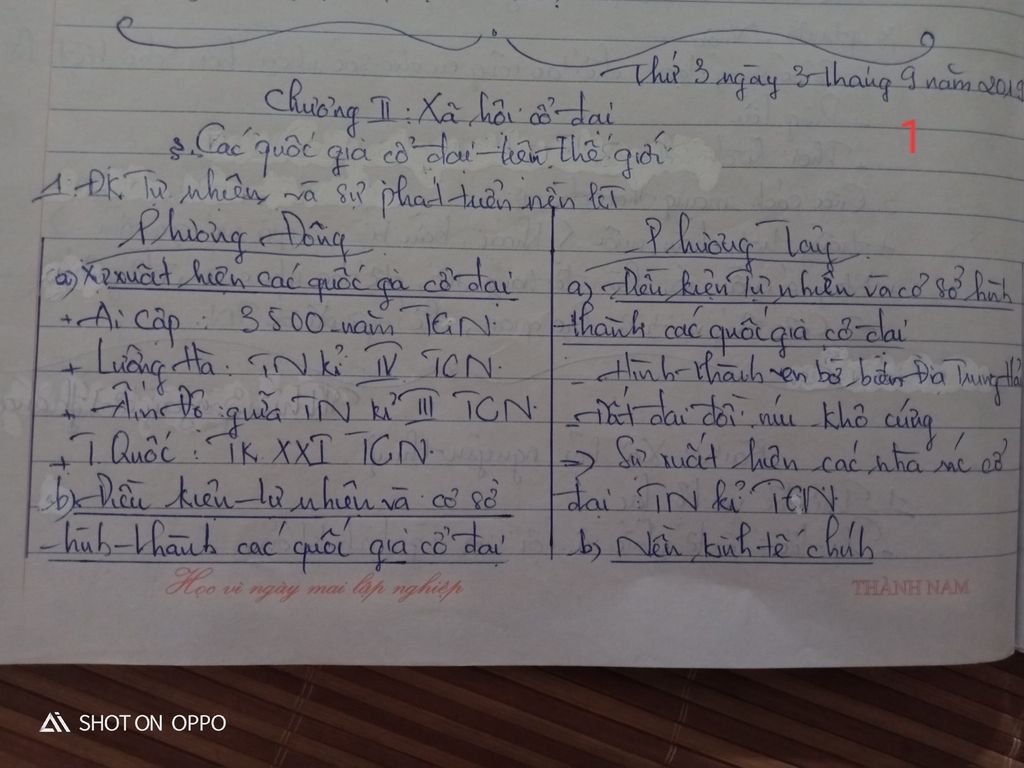 Thứ 3 ngày 3 tháng 9 năm 2019
Chương II : Xã hội cổ đại
1
§. Các quốc gia cổ đại trên thế giới
1. ĐK Tự nhiên và sự phát triển nền KT
Phương Đông
a) Sự xuất hiện các quốc gia cổ đại
+ Ai Cập : 3500 năm TCN.
+ Lưỡng Hà : TN kỉ IV TCN.
+ Ấn Độ : giữa TN kỉ III TCN.
+ T. Quốc : TK XXI TCN.
b) Điều kiện tự nhiên và cơ sở
hình thành các quốc gia cổ đại
Phương Tây
a) Điều kiện Tự nhiên và cơ sở hình
thành các quốc gia cổ đại
- Hình thành ven bờ biển Địa Trung Hải
- Đất đai đồi núi khô cứng
=> Sự xuất hiện các nhà nc cổ
đại : TN kỉ TCN
b) Nền kinh tế chính
Học vì ngày mai lập nghiệp
THÀNH NAM
SHOT ON OPPO